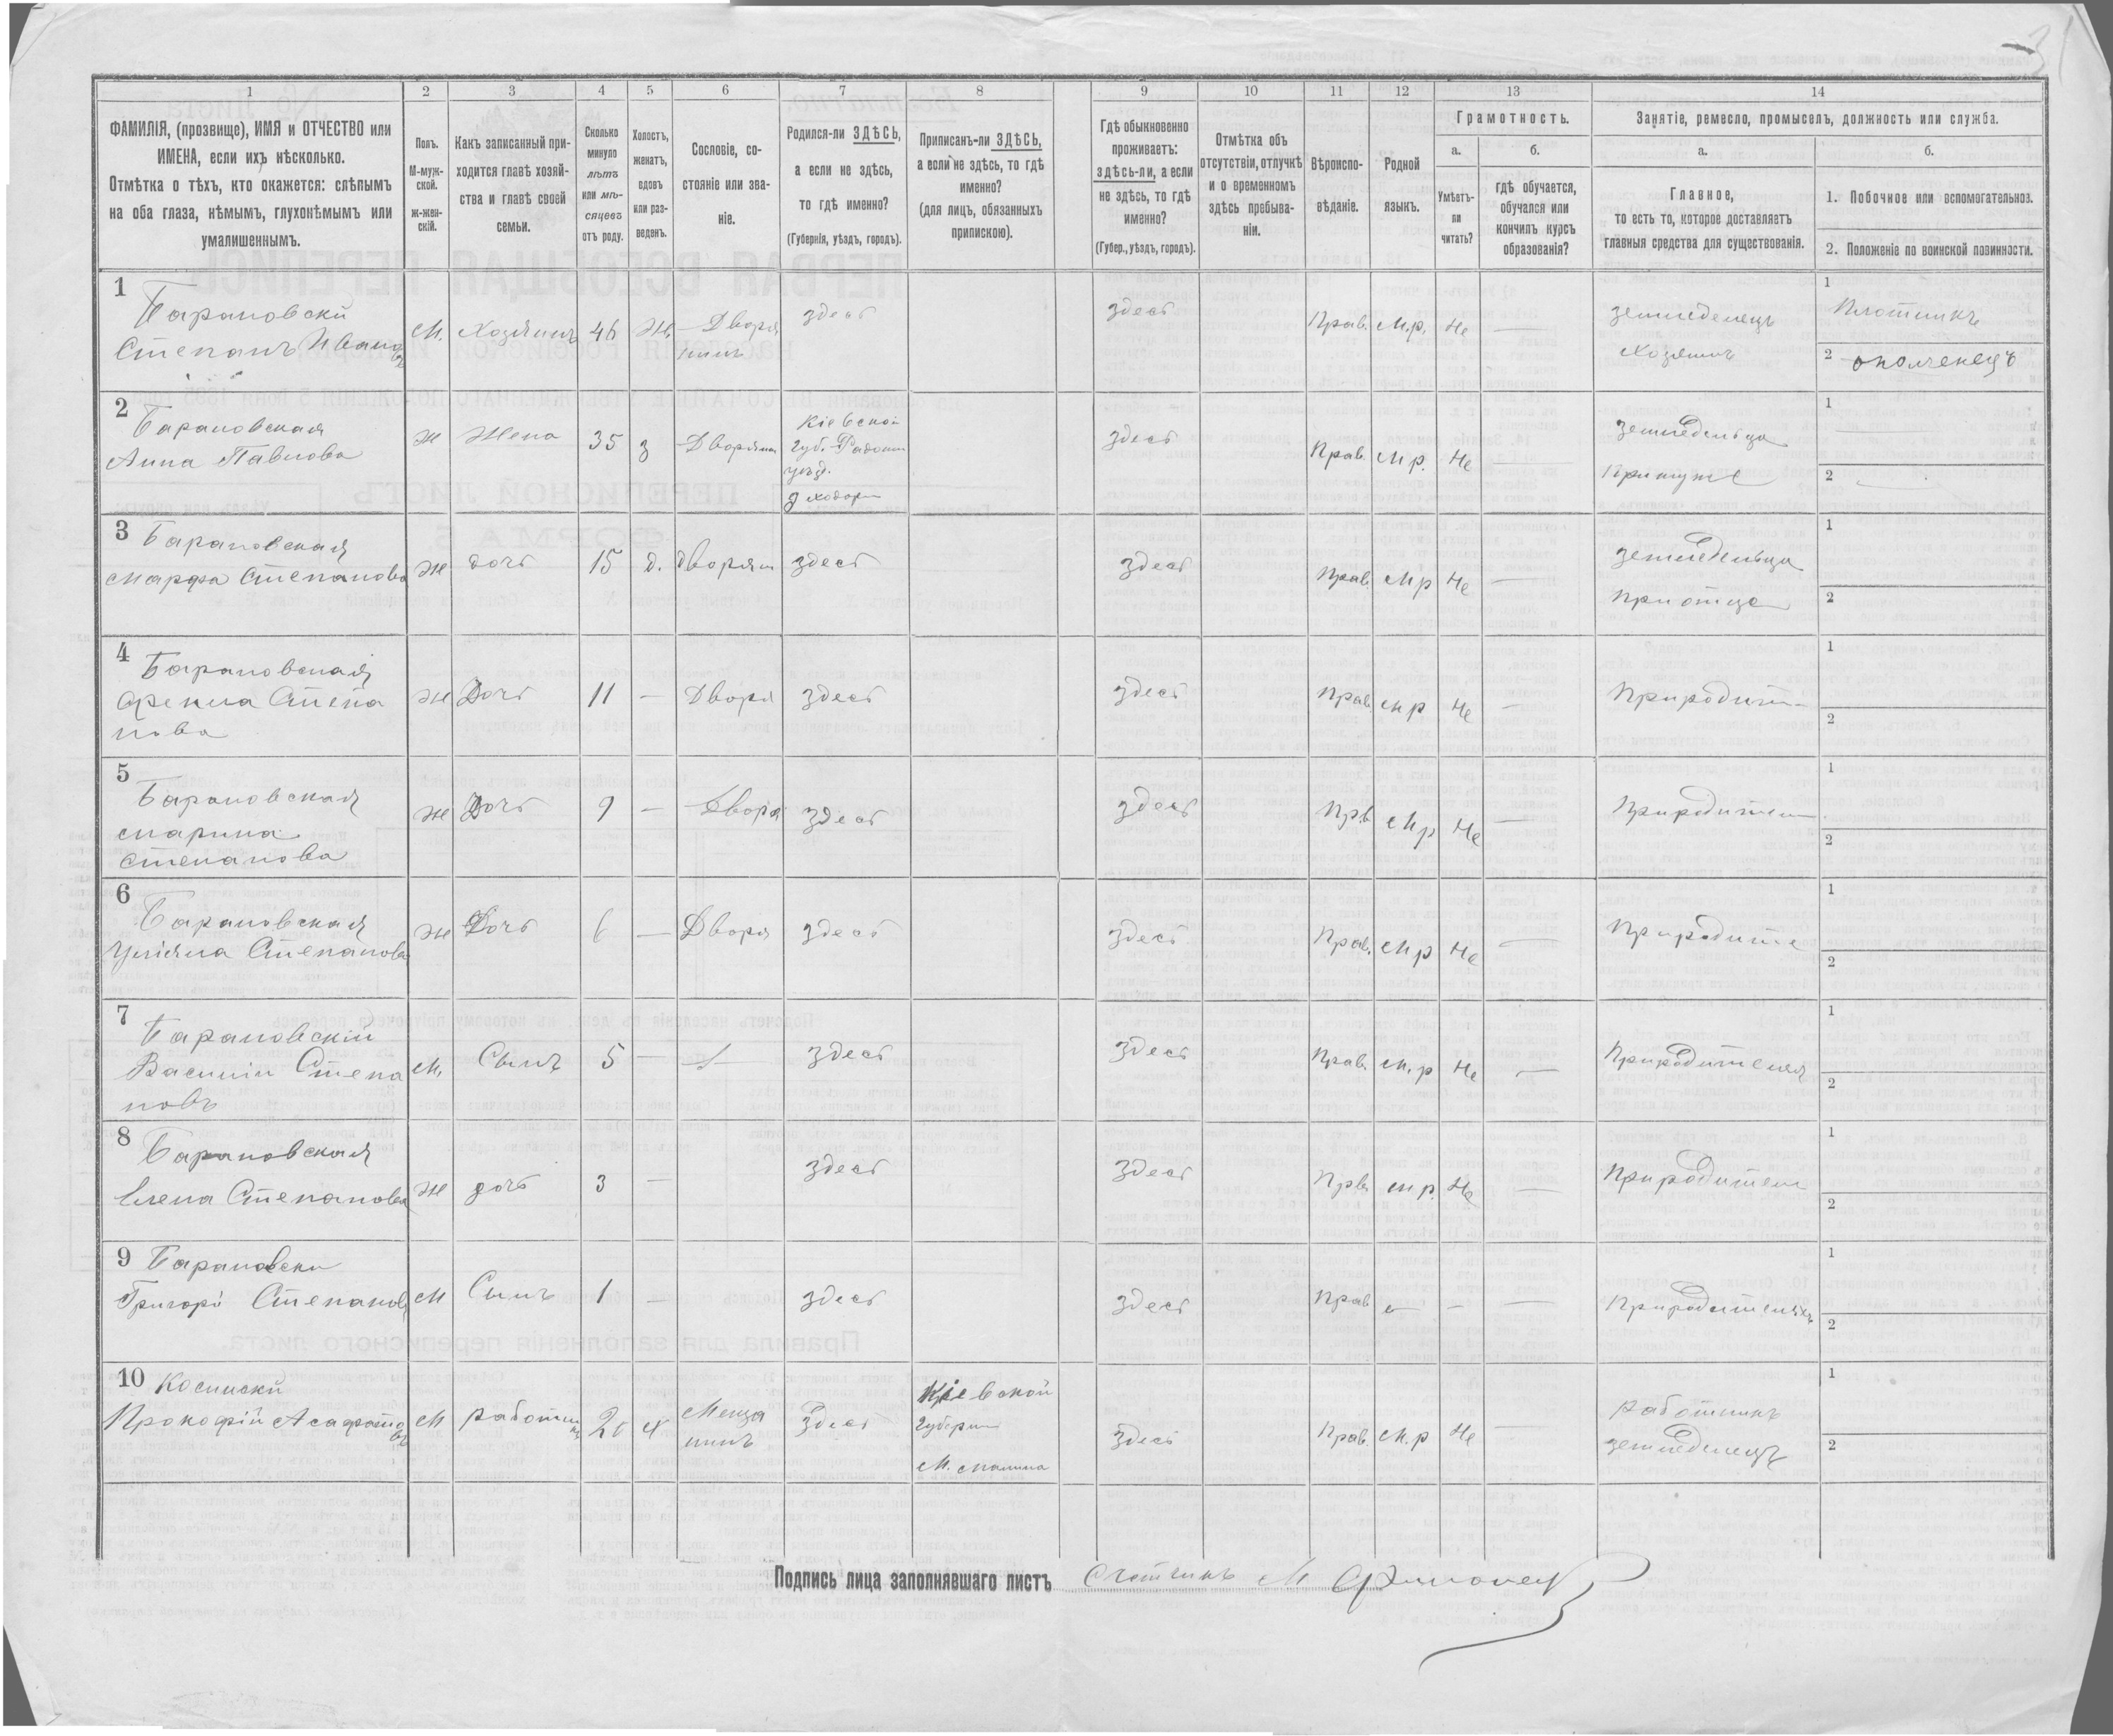 1 2 3 4 5 6 7 8 9 10 11 12 13 14
ФАМИЛІЯ, (прозвище), ИМЯ и ОТЧЕСТВО или
ИМЕНА, если ихъ нѣсколько.
Отмѣтка о тѣхъ, кто окажется: слѣпымъ
на оба глаза, нѣмымъ, глухонѣмымъ или
умалишеннымъ.
Полъ.
М-муж-
ской.
ж-жен-
скій.
Какъ записанный при-
ходится главѣ хозяй-
ства и главѣ своей
семьи.
Сколько
минуло
лѣтъ
или мѣ-
сяцевъ
отъ роду.
Холостъ,
женатъ,
вдовъ
или раз-
веденъ.
Сословіе, со-
стояніе или зва-
ніе.
Родился-ли ЗДѢСЬ,
а если не здѣсь,
то гдѣ именно?
(Губернія, уѣздъ, городъ).
Приписанъ-ли ЗДѢСЬ,
а если не здѣсь, то гдѣ
именно?
(для лицъ, обязанныхъ
припискою).
Гдѣ обыкновенно
проживаетъ:
здѣсь-ли, а если
не здѣсь, то гдѣ
именно?
(Губер., уѣздъ, городъ).
Отмѣтка объ
отсутствіи, отлучкѣ
и о временномъ
здѣсь пребыва-
ніи.
Вѣроиспо-
вѣданіе.
Родной
языкъ.
Грамотность.
а.
Умѣетъ-
ли
читать?
б.
гдѣ обучается,
обучался или
кончилъ курсъ
образованія?
Занятіе, ремесло, промыселъ, должность или служба.
а.
Главное,
то есть то, которое доставляетъ
главныя средства для существованія.
б.
1. Побочное или вспомогательное.
2. Положеніе по воинской повинности.
1
Барановски
Степанъ Ивановъ
М. Хозяинъ 46 Ж Дворя
нинъ
здесь
здесь
Прав. М.р. Не —
земледелецъ
Хозяинъ
1 Плотникъ
2 ополченецъ
2
Барановская
Анна Павлова
Ж Жена 35 З Дворян
Кіевской
Губ. Радом
уезд.
здесь
Прав. М р. Не —
земледельца
при муже
1
2
3
Барановская
Марфа Степанова
Ж дочь 15 д. дворян здесь
здесь
Прав. М р Не —
земледельца
при отце
1
2
4
Барановская
Фекла Степа
нова
Ж Дочь 11 — Дворя здесь
здесь
Прав. М р Не —
При родит
1
2
5
Барановская
Марина
Степанова
Ж Дочь 9 — Дворя здесь
здесь
Прв М р Не —
При родител
1
2
6
Барановская
Уліяна Степанова
Ж Дочь 6 — Дворя здесь
здесь
Прав. М р Не —
При родите
1
2
7
Барановскій
Василій Степа
новъ
М. Сынъ 5 — здесь
здесь
Прав. М. р Не —
При родителя
1
2
8
Барановская
Елена Степанова
Ж дочь 3 — здесь
здесь
Прв М р. Не —
При родител
1
2
9
Барановски
Григорі Степановъ
М Сынъ 1 — здесь
здесь
Прав — — —
При родителяхъ
1
2
10
Прокофій
М Работникъ 20 Х Меща
нинъ
Здесь
Кіевской
Губерни
М. Малина
здесь
Прав. М. р Не —
Работникъ
земледелецъ
1
2
Подпись лица заполнявшаго листъ Счетчикъ М